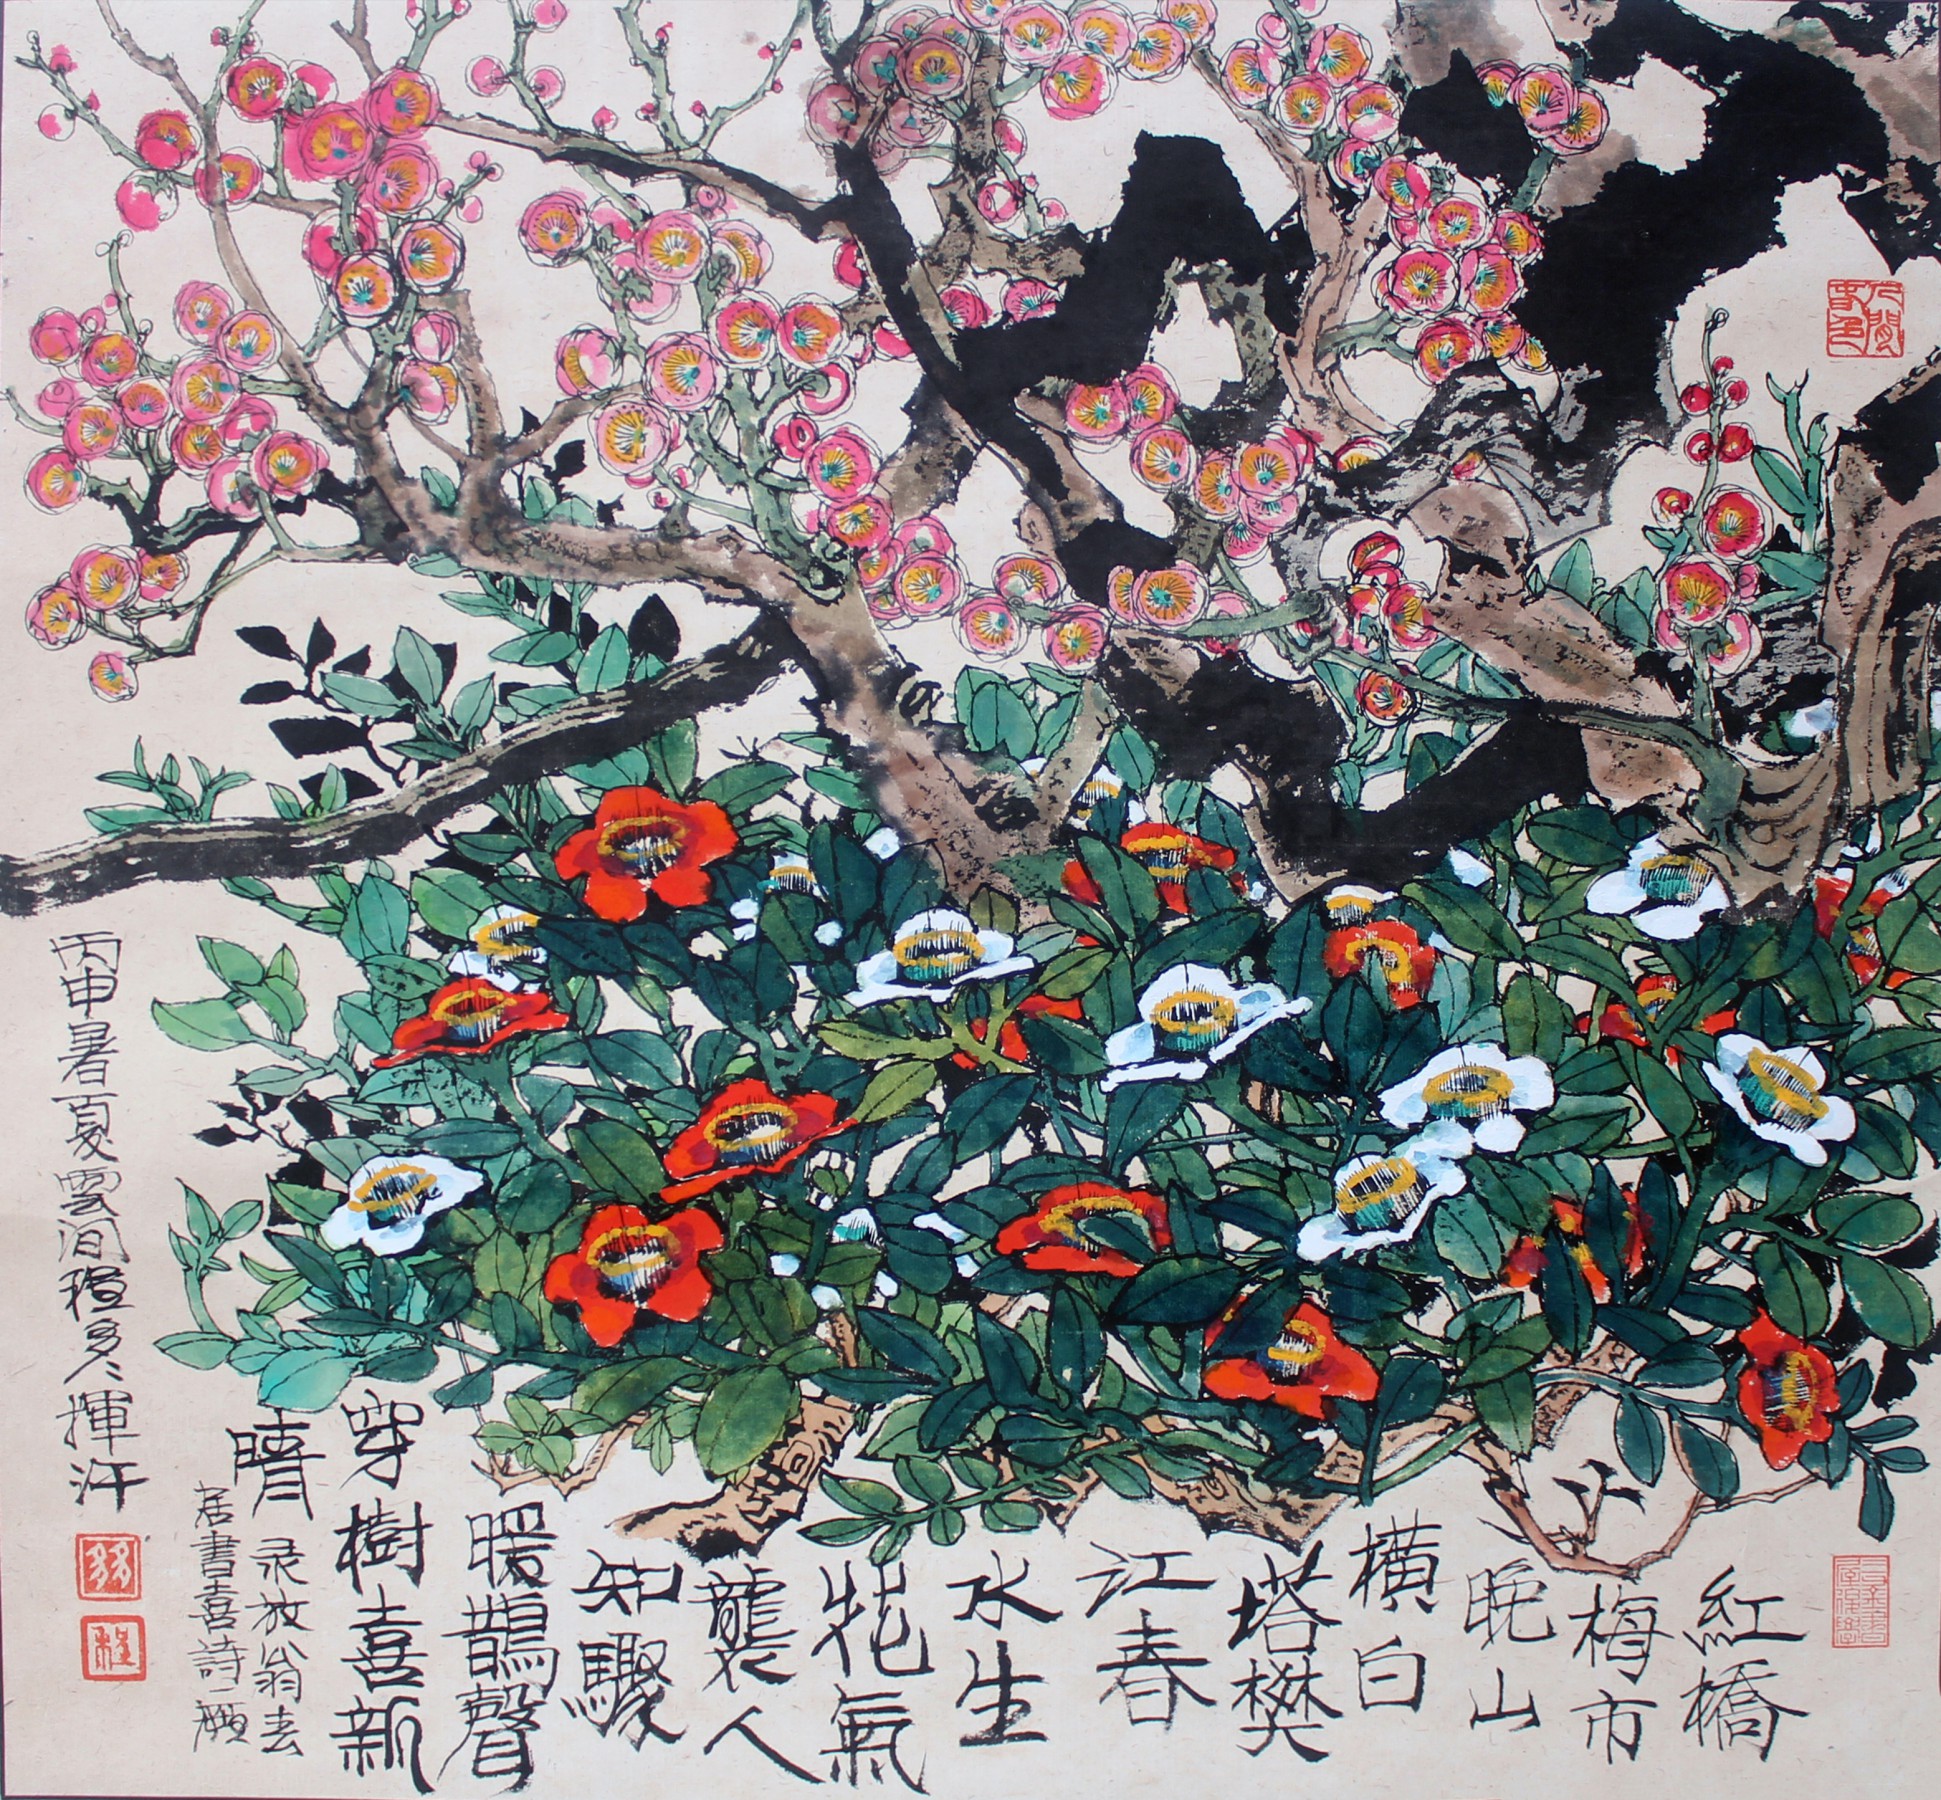 紅橋
梅市
晚山
橫白
塔樊
江春
水生
花氣
襲人
知驟
暖鵲聲
穿樹喜新
晴
录放翁
居書喜詩一
丙申暑夏雲间程多多揮汗
多多
程